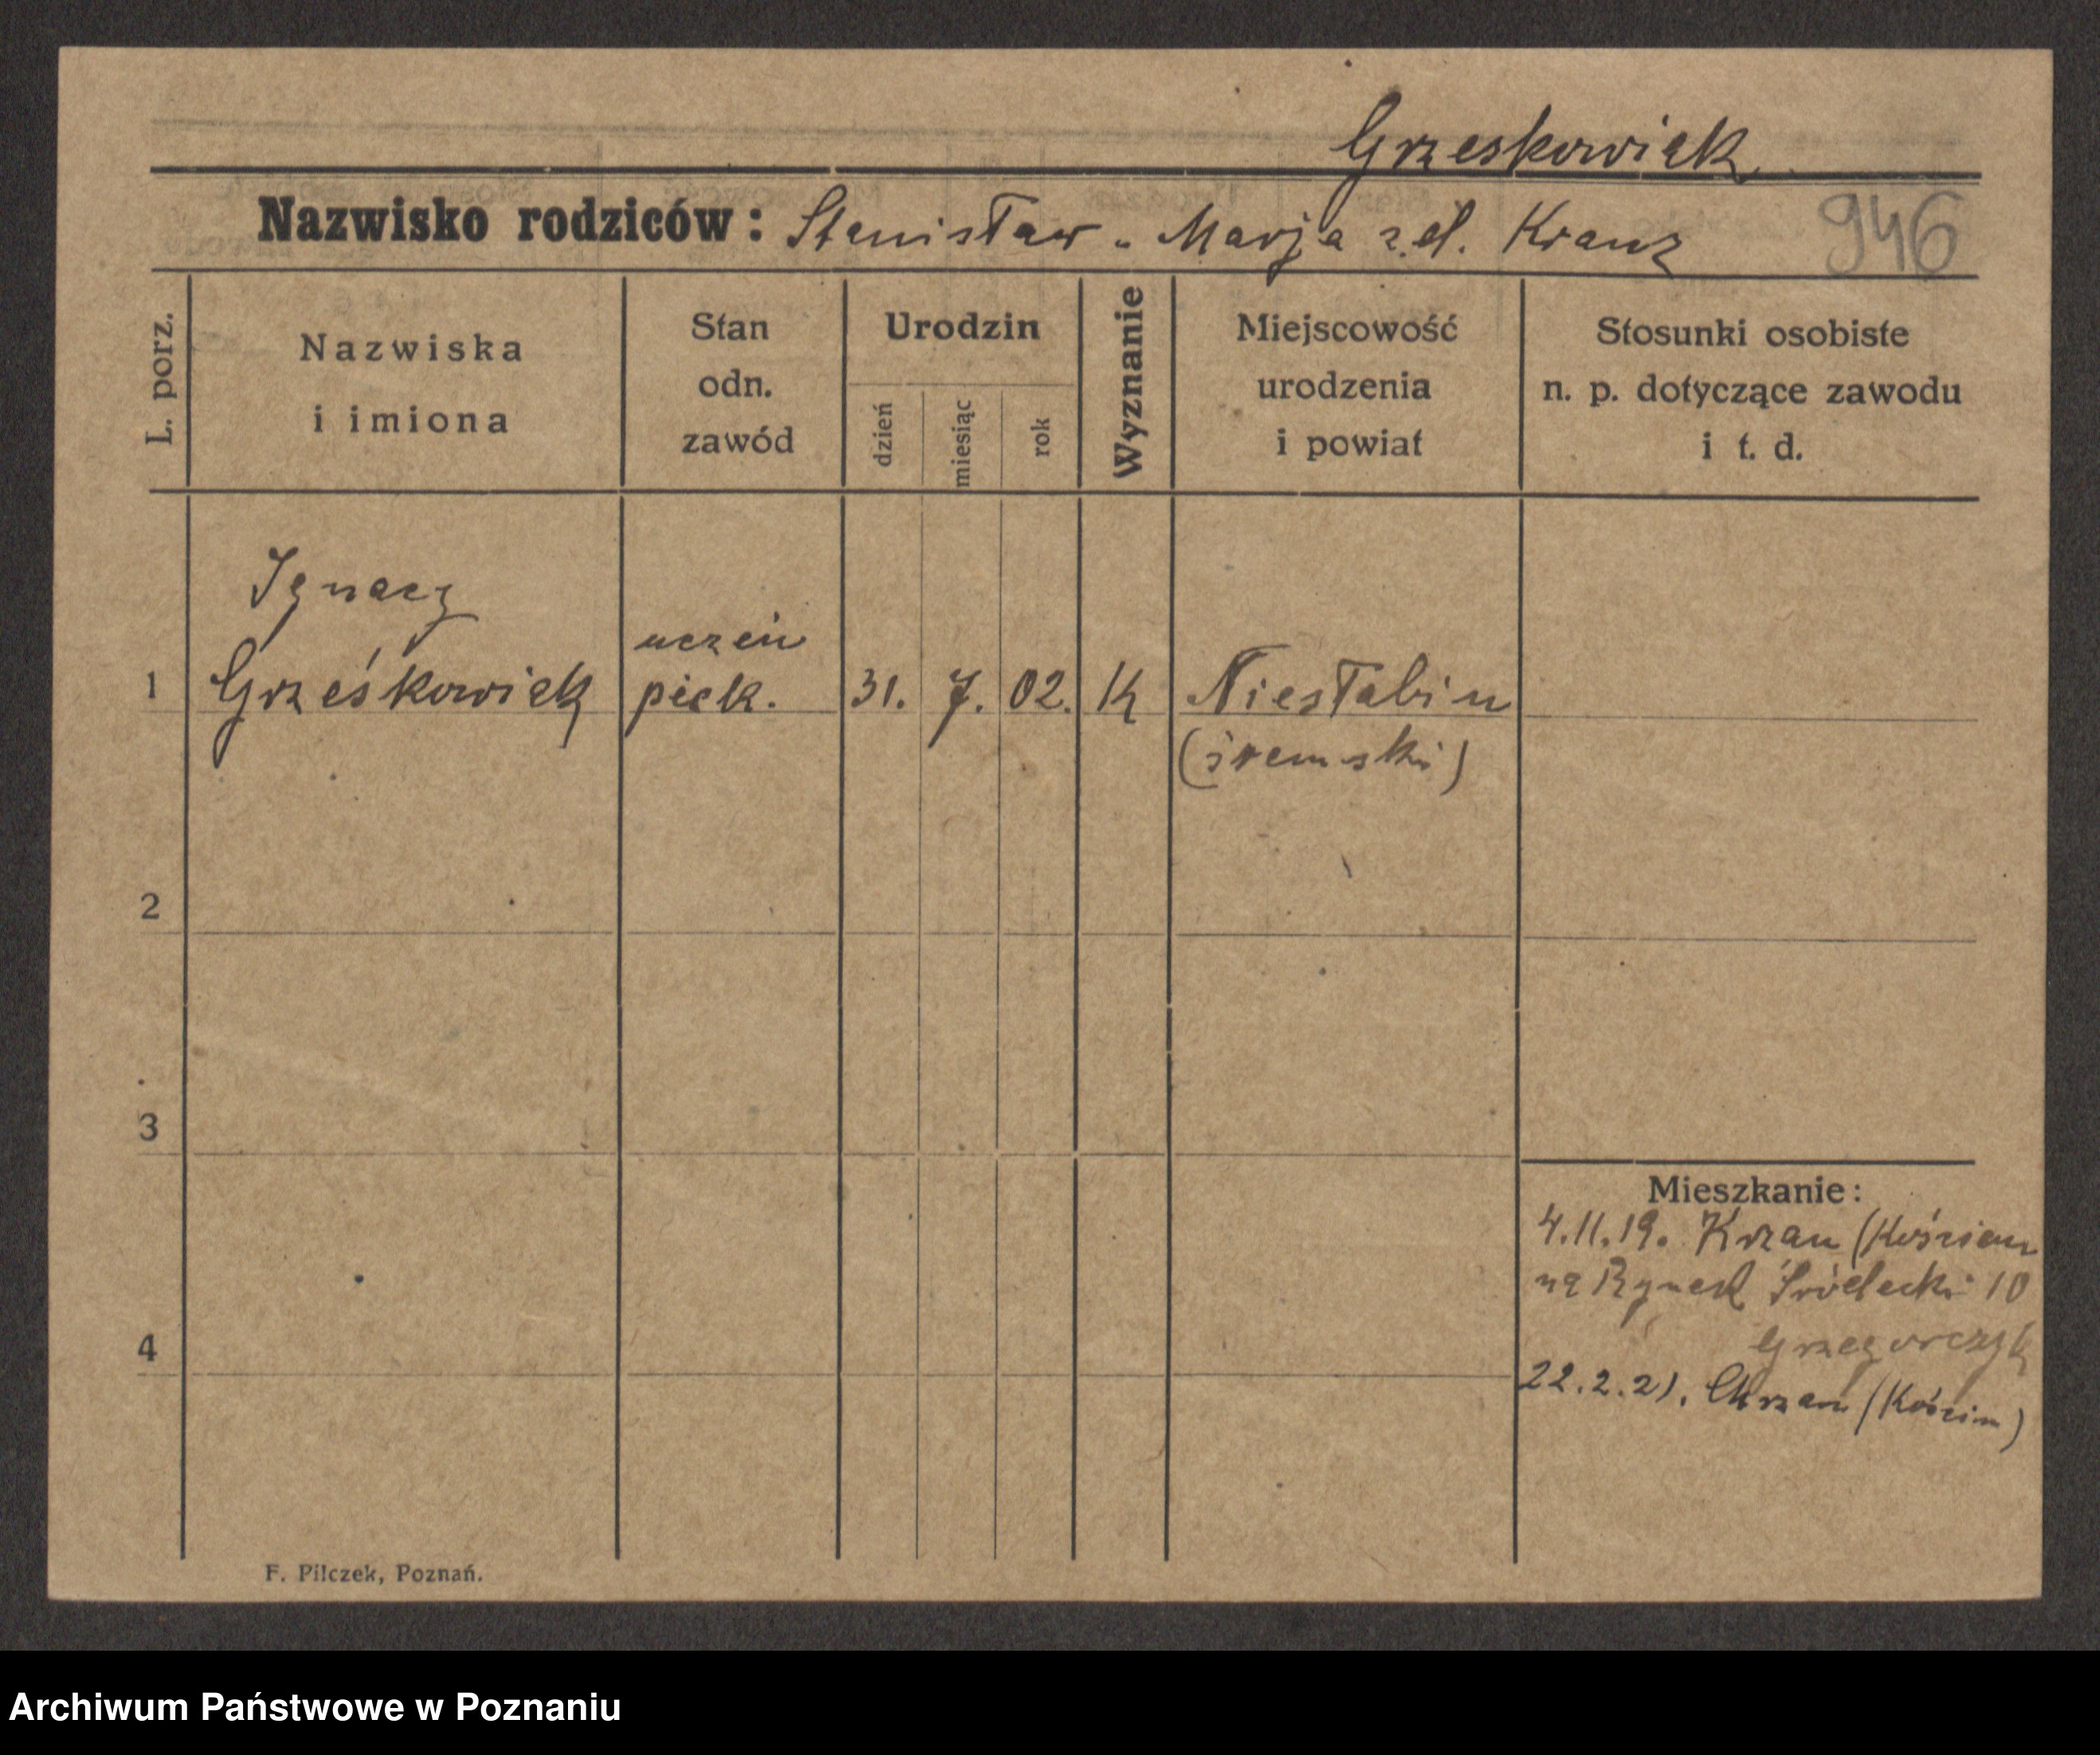 Grześkowiak
Nazwisko rodziców: Stanisław - Marja z d. Kranz
946
L. porz.
Nazwiska
i imiona
Stan
odn.
zawód
Urodzin
dzień
miesiąc
rok
Wyznanie
Miejscowość
urodzenia
i powiat
Stosunki osobiste
n. p. dotyczące zawodu
i t. d.
Ignacy
uczeń
1 Grześkowiak piek. 31. 7. 02. K Niesłabin
(śremski)
2
3
Mieszkanie:
4.11.19. Krzan (Kościan
na Rynek Śródecki 10
Grzegorczyk
4
22.2.21. Chrzan (Kościan)
F. Pilczek, Poznań.
Archiwum Państwowe w Poznaniu